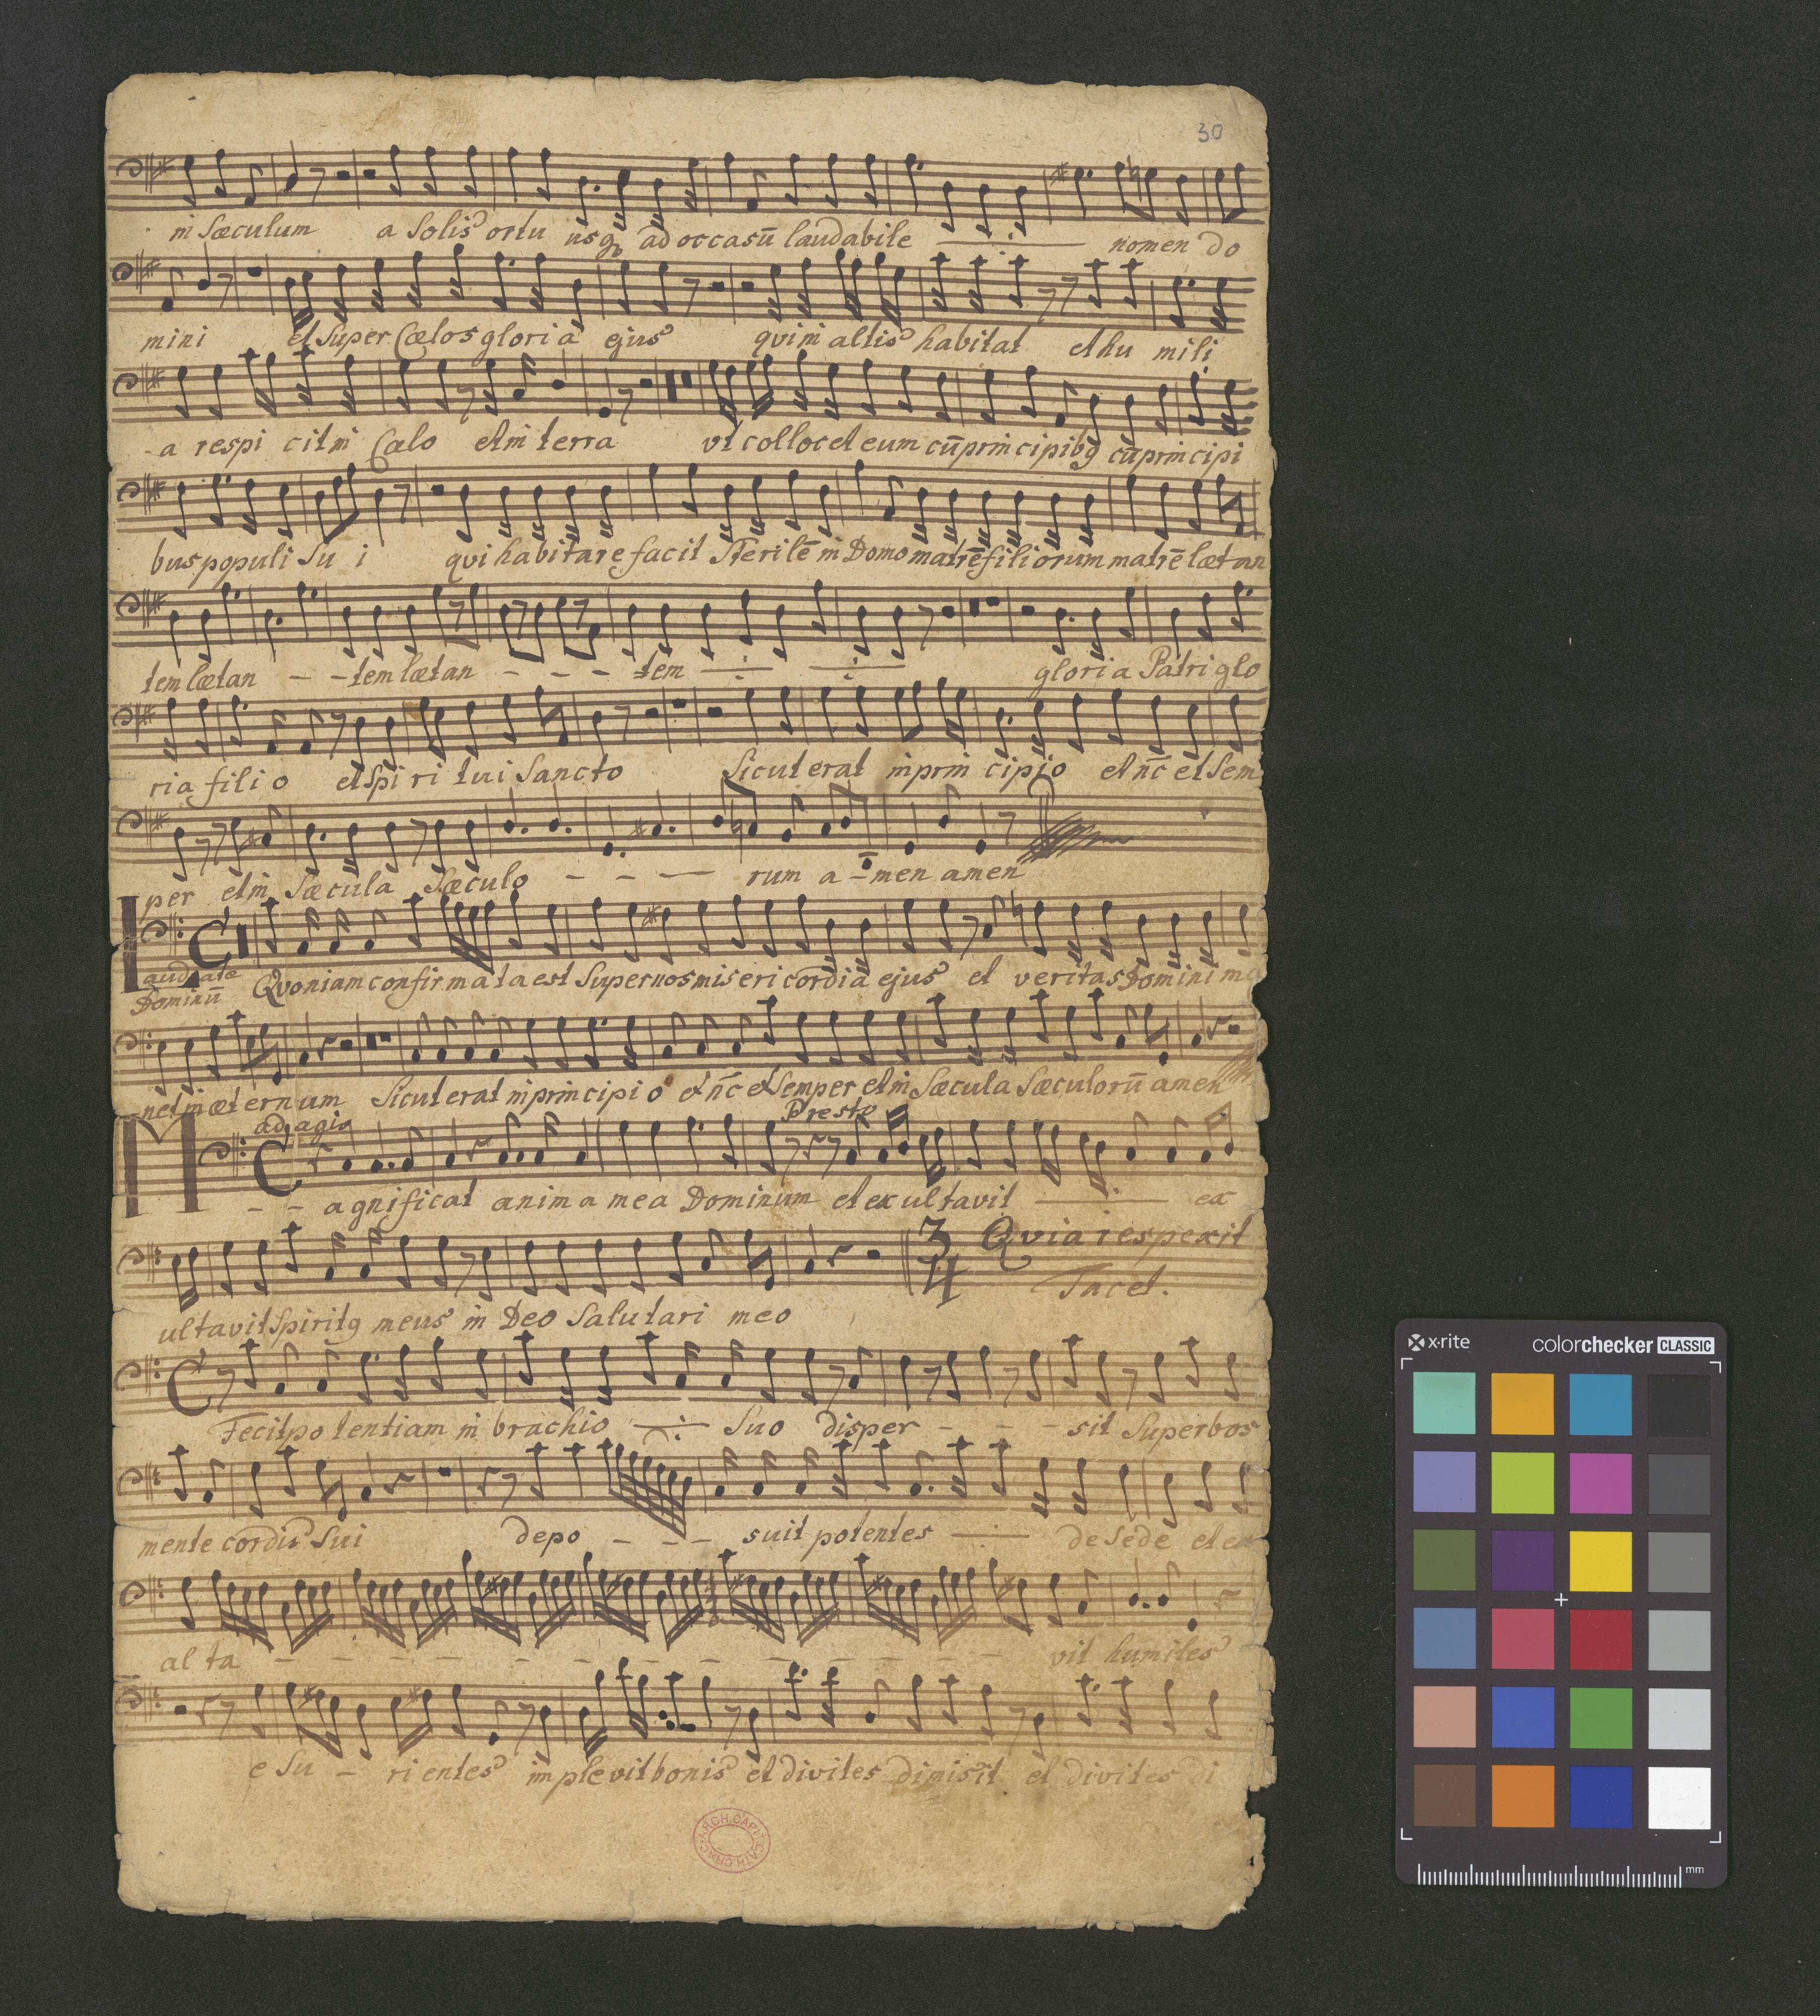 30
in sæculum a solis ortu usq3 ad occasū laudabile nomen do
mini et super Cælos gloria ejus qui in altis habitat et hu mili
a respi cit in Cælo et in terra vt collocet eum cū principibq cū principi
bus populi su i qui habitare facit Sterilē in Domo matrē filiorum matrē lætan
tem lætan - - tem lætan - - - tem gloria Patri glo
ria filio et spi ri tui Sancto Sicut erat in prin cipio et nc̄ et sem
per et in sæcula sæculo - - - rum a - men amen
Laudate Dominū
Quoniam confirmata est super nos misericordia ejus et veritas Domini ma
net in æternum Sicut erat in principio et nc̄ et semper et in sæcula sæculorū amen
adagio Presto
M - - agnificat anima mea Dominum et exultavit ex
Qvia respexit
Tacet.
3/4
ultavit spiritq meus in Deo Salutari meo
C
Fecit potentiam in brachio suo disper - - - sit superbos
mente cordis sui depo - - - suit potentes de sede et ex
al ta - - - - - - - - - - - vit humiles
e su - ri entes implevit bonis et divites dimisit et divites di
ARCH. CAPIT. CATH. CRAC
x·rite colorchecker CLASSIC
mm